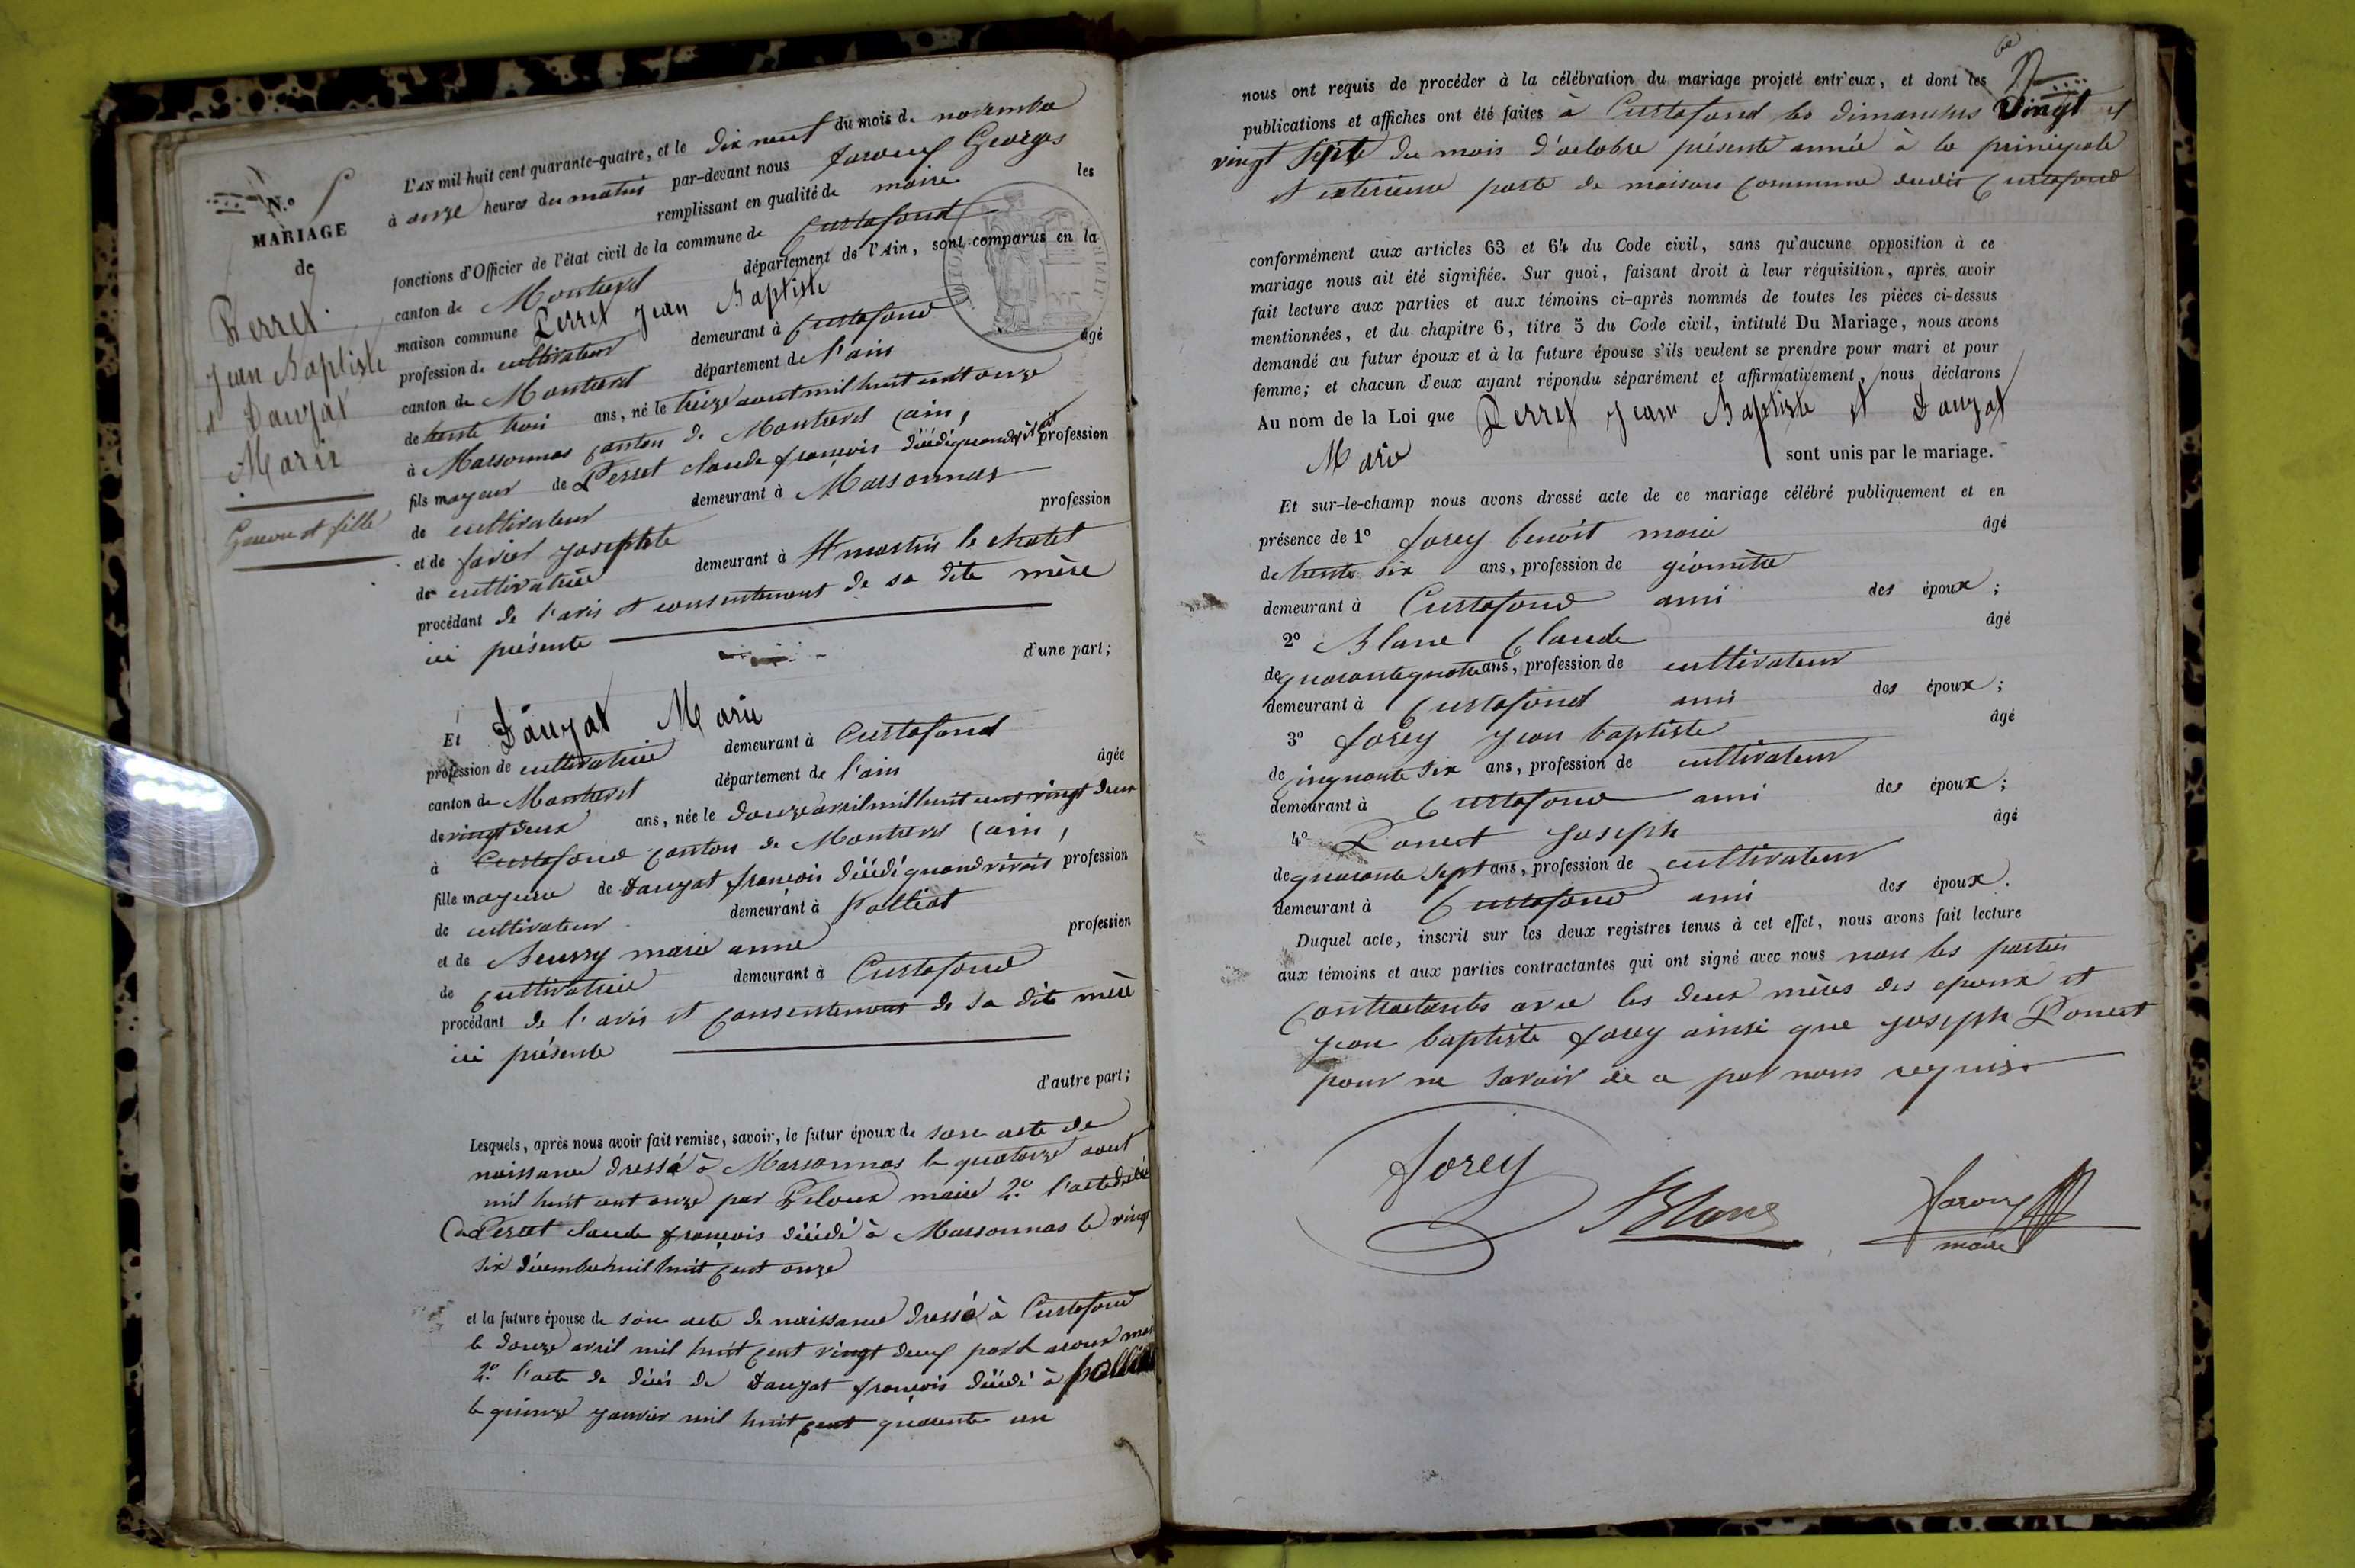 N.o 5
MARIAGE
de
Perret
Jean Baptiste
et Dauzat
Marie
Garcon et fille
L'AN mil huit cent quarante-quatre, et le dix neuf du mois de novembre
à onze heures du matin par-devant nous Georges
maire remplissant en qualité de les
fonctions d'Officier de l'état civil de la commune de Curtafond
canton de Montrevel département de l'Ain, sont comparus en la
maison commune Perret Jean Baptiste
profession de cultivateur demeurant à Curtafond
canton de Montrevel département de l'ain âgé
de trente trois ans, né le treize aout mil huit cent onze
à Marsonnas canton de Montrevel (ain)
fils majeur de Perret claude francois décédé quand vivait profession
de cultivateur demeurant à Marsonnas
et de favier Josephte profession
de cultivatrice demeurant à St martin le chatel
procédant de l'avis et consentement de sa dite mère
ici présente
d'une part;
Et Dauzat Marie
profession de cultivatrice demeurant à Curtafond
canton de Montrevel département de l'ain âgée
de vingt deux ans, née le douze avril mil huit cent vingt deux
à Curtafond canton de Montrevel (ain)
fille majeure de Dauzat francois décédé quand vivait profession
de cultivateur demeurant à Polliat
et de Beussy marie anne profession
de cultivatrice demeurant à Curtafond
procédant de l'avis et consentement de sa dite mère
ici présente
d'autre part;
Lesquels, après nous avoir fait remise, savoir, le futur époux de son acte de
naissance dressé à Marsonnas le quatorze aout
mil huit cent onze par Peloux maire 2.o l'acte de décé
de Perret claude francois décédé à Marsonnas le vingt
six décembre mil huit cent onze
et la future épouse de son acte de naissance dressé à Curtafond
le douze avril mil huit cent vingt deux par
2.o l'acte de décés de Dauzat francois décédé à polliat
le quinze janvier mil huit cent quarente un
nous ont requis de procéder à la célébration du mariage projeté entr'eux, et dont les
publications et affiches ont été faites à Curtafond les dimanches vingt et
vingt sept du mois d'octobre présente année à la principale
et extérieure porte de maison commune dudit Curtafond
conformément aux articles 63 et 64 du Code civil, sans qu'aucune opposition à ce
mariage nous ait été signifiée. Sur quoi, faisant droit à leur réquisition, après avoir
fait lecture aux parties et aux témoins ci-après nommés de toutes les pièces ci-dessus
mentionnées, et du chapitre 6, titre 5 du Code civil, intitulé Du Mariage, nous avons
demandé au futur époux et à la future épouse s'ils veulent se prendre pour mari et pour
femme; et chacun d'eux ayant répondu séparément et affirmativement, nous déclarons
Au nom de la Loi que Perret Jean Baptiste et Dauzat
Marie sont unis par le mariage.
Et sur-le-champ nous avons dressé acte de ce mariage célébré publiquement et en
présence de 1o forey benoit marie âgé
de trente six ans, profession de géomètre
demeurant à Curtafond ami des époux;
2o Blanc Claude âgé
de quarante quatre ans, profession de cultivateur
demeurant à Curtafond ami des époux;
3o forey Jean baptiste âgé
de cinquante six ans, profession de cultivateur
demeurant à Curtafond ami des époux;
4o Poncet Joseph âgé
de quarante sept ans, profession de cultivateur
demeurant à Curtafond ami des époux.
Duquel acte, inscrit sur les deux registres tenus à cet effet, nous avons fait lecture
aux témoins et aux parties contractantes qui ont signé avec nous non les parties
contractantes avec les deux mères des epoux et
Jean baptiste forey ainsi que joseph Poncet
pour ne savoir de ce par nous requis.
forey
Blanc
maire